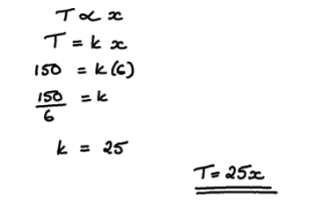 T ∝ x
T = k x
150 = k(6)
150/6 = k
k = 25
T = 25x